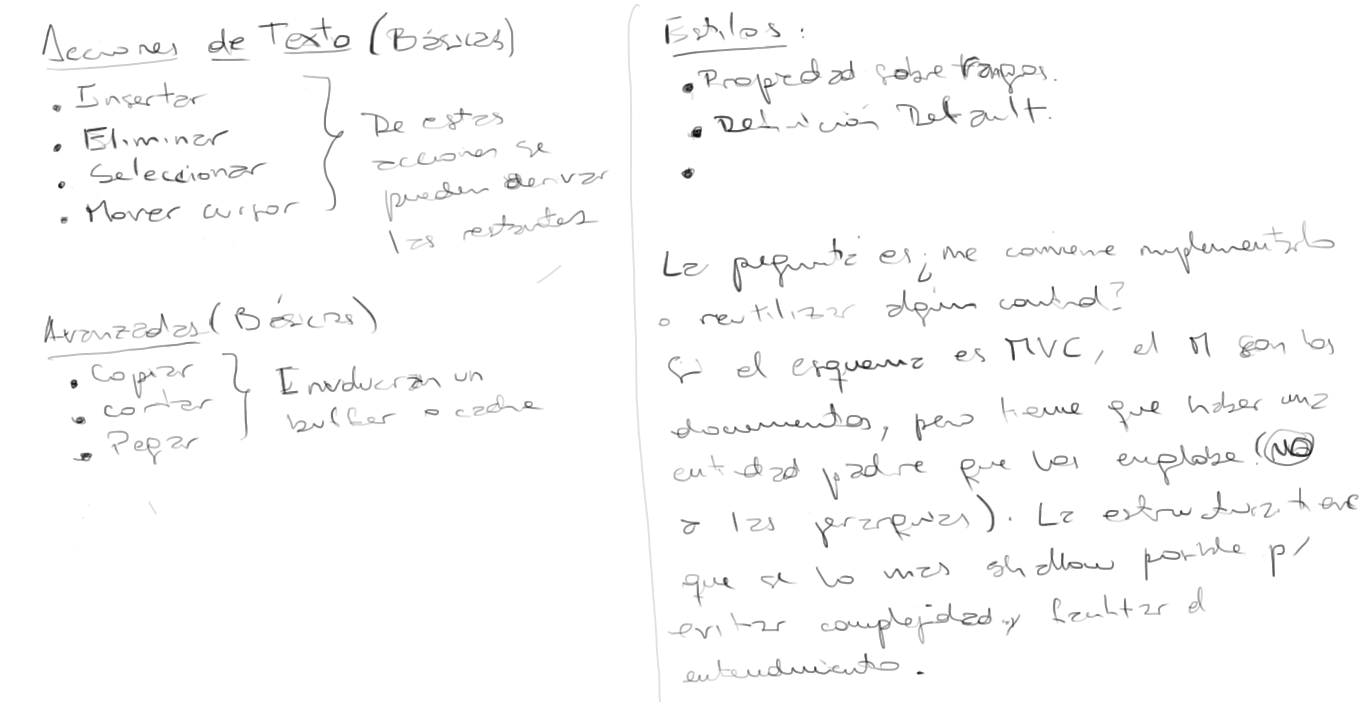 Acciones de Texto (Básicas)
• Insertar
• Eliminar
• Seleccionar
• Mover cursor
De estas
acciones se
pueden derivar
las restantes
Avanzadas (Básicas)
• Copiar
• cortar
• Pegar
Involucran un
buffer o cache
Estilos:
• Propiedad sobre rangos.
• Definición Default.
•
La pregunta es ¿me conviene implementarlo
o reutilizar algún control?
Si el esquema es MVC, el M son los
documentos, pero tiene que haber una
entidad padre que los englobe (NO
a las jerarquías). La estructura tiene
que se lo mas shallow posible p/
evitar complejidad y facilitar el
entendimiento.